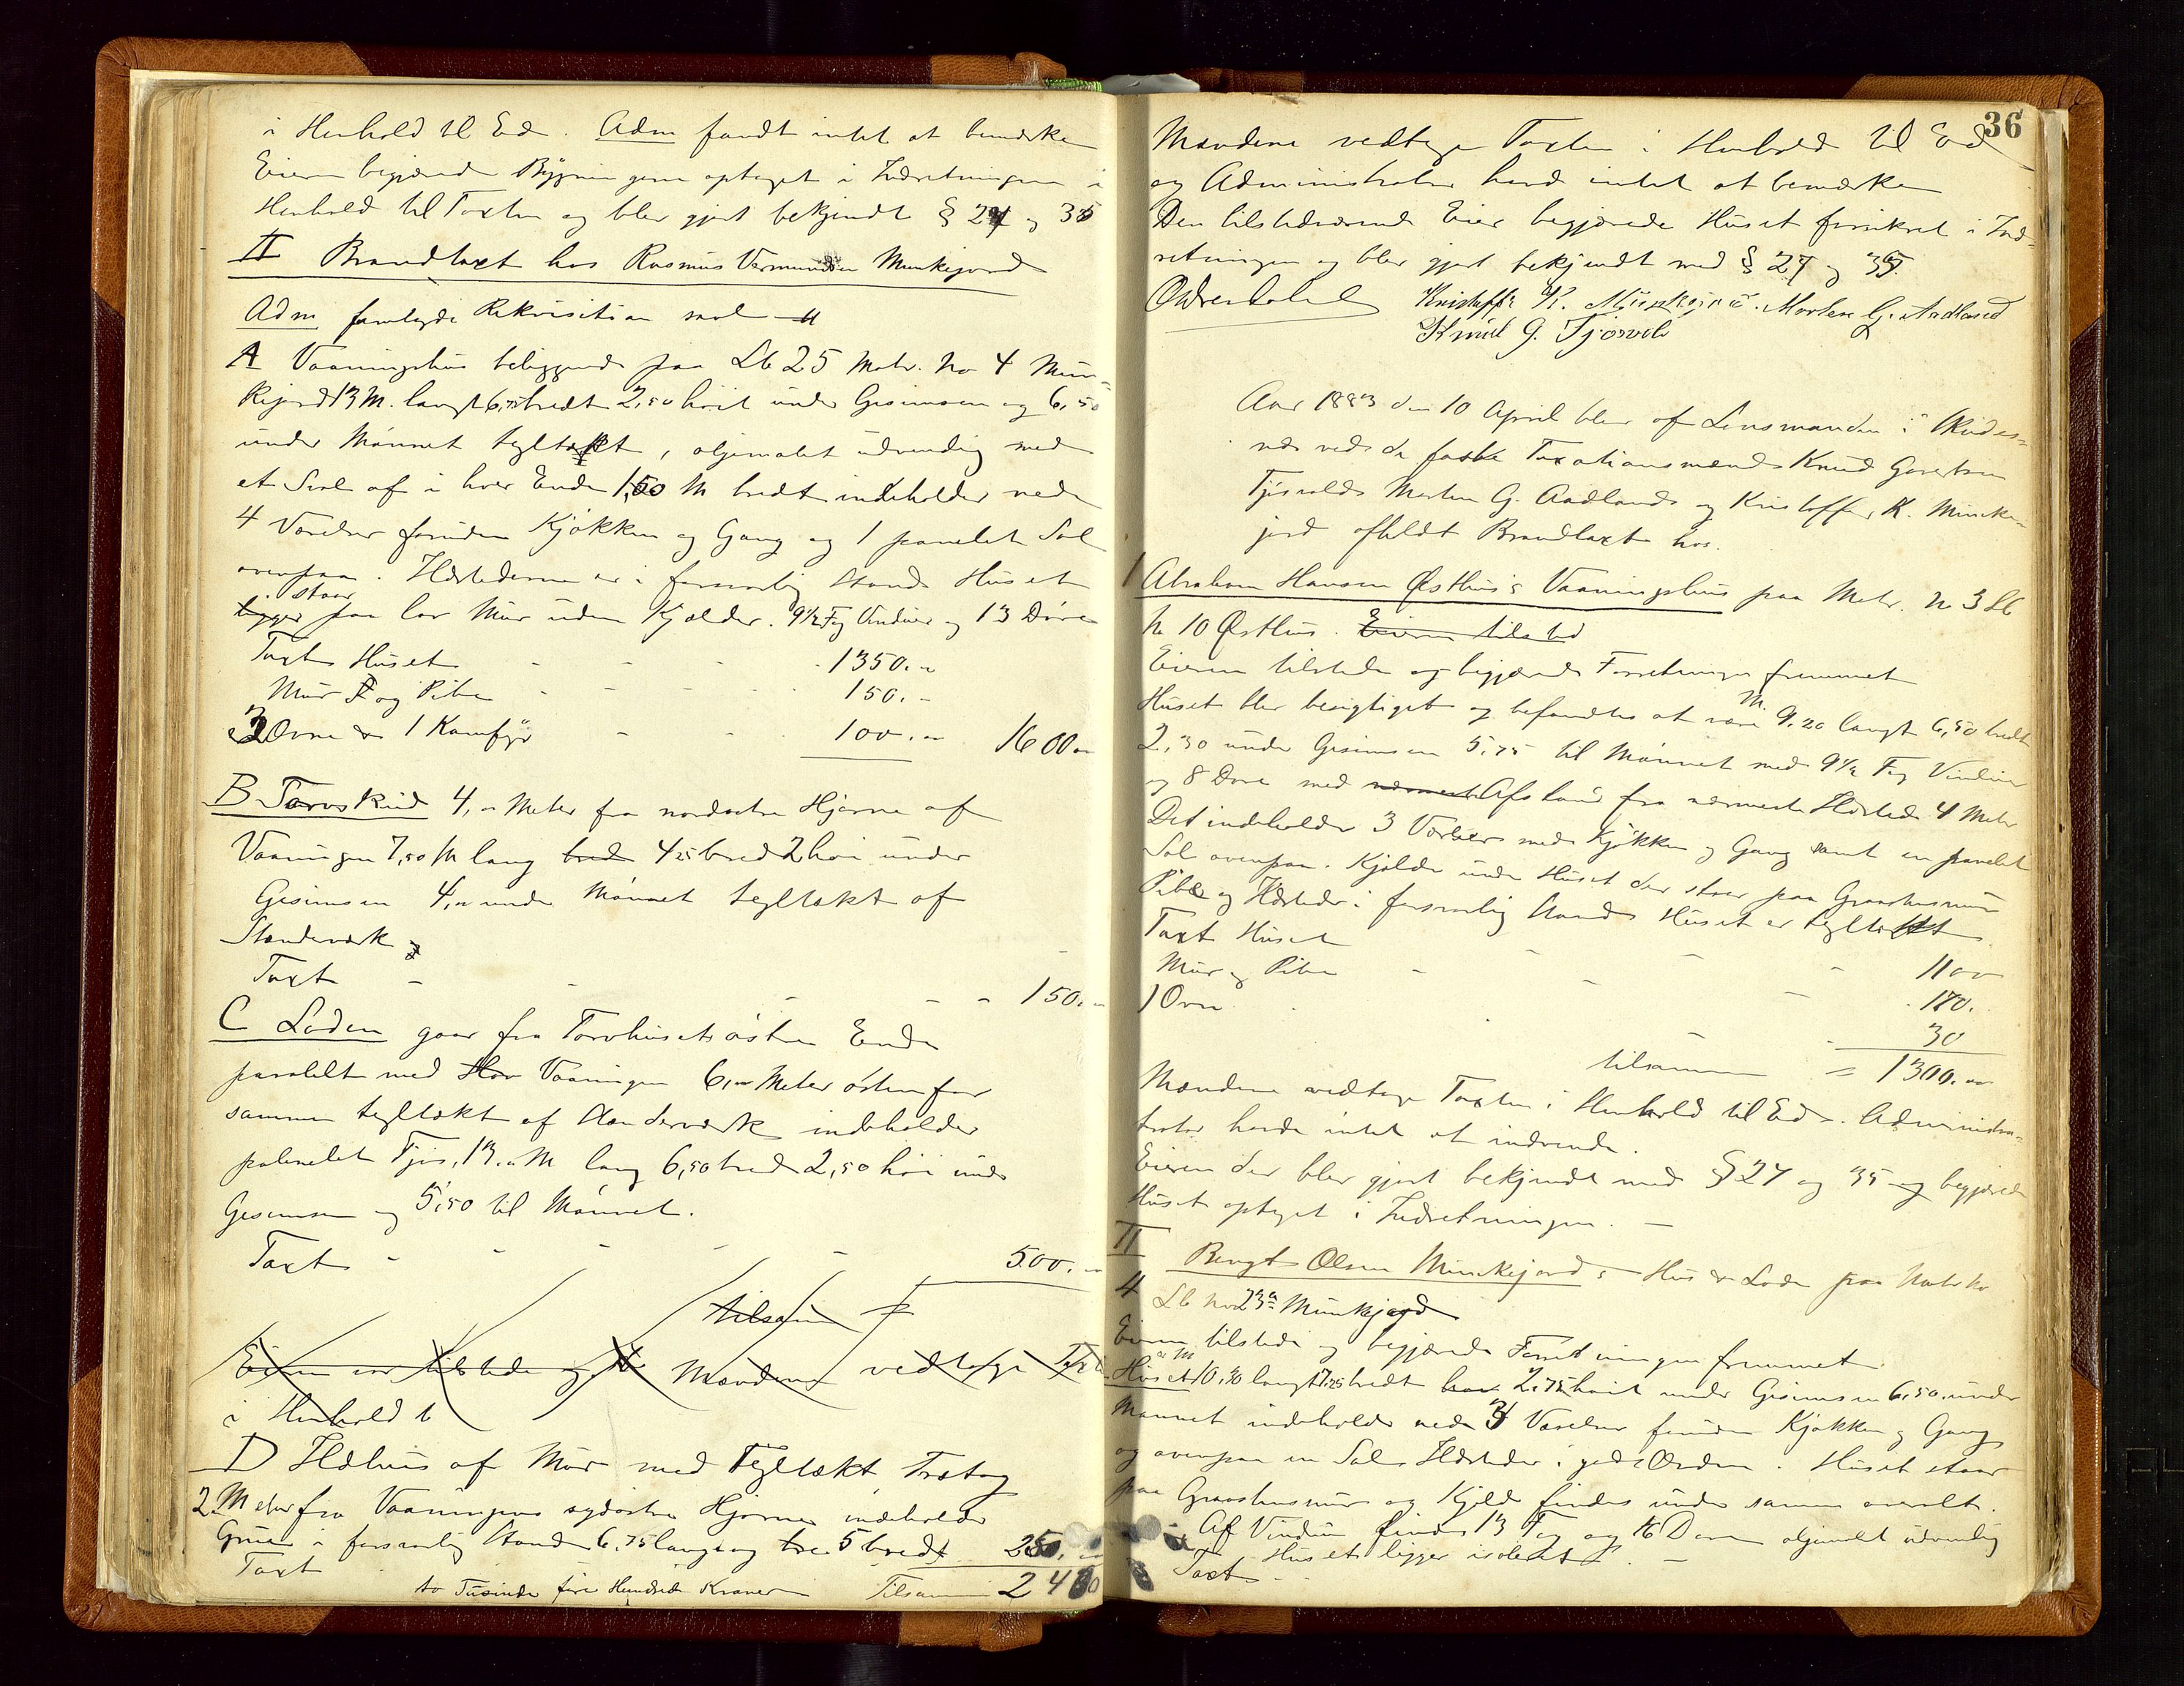 i Henhold til Ed. Adm fandt intet at bemærke
Eieren begjærede Bygningerne optaget i Indretningen i
Henhold til Taxten og blev gjort bekjendt § 27 og 35
II Brandtaxt hos Rasmus Vermundsen Munkejord
Adm fremlagde Rekvisition
A Vaaningshus beliggende paa Lb 25 Matr. No 4 Mun-
kejord 13 M. langt 6,75 bredt 2,50 høit under Gesimsen og 6,50
under Mønnet tegltækt, oljemalet udvendig med
et Sval af i hver Ende 1,50 M bredt indeholder nede
4 Værelser foruden Kjøkken og Gang og 1 panelet Sal
ovenpaa. Ildstederne er i forsvarlig Stand Huset
staar
ligger paa lav Mur uden Kjælder. 9 1/2 Fag Vinduer og 13 Døre
Taxt Huset - - - 1350.-
Mur og Pibe - - - 150.-
2 Ovne & 1 Komfyr - - 100.- 1600.-
B Torvskud 4,- Meter fra nordvestre Hjørne af
Vaaningen 7,50 M lang bred 4,25 bred 2 høi under
Gesimsen 4,- under Mønnet tegltækt af
Stenderværk
Taxt - - - - - 150.-
C Laden gaar fra Torvhusets østre Ende
paralelt med Vaaningen 6,- Meter østenfor
samme tegltækt af Standerværk indeholder
Fjøs, 13,- M lang 6,50 bred 2,50 høi under
Gesimsen og 5,50 til Mønnet.
Taxt - - - - - 500.-
tilsam
Eieren var tilstede og Mændene vedtage Taxten
i Henhold t
D Ildhus af Mur med Tegltækt Trætag
2 Meter fra Vaaningens sydøstre Hjørne indeholder
Grue i forsvarlig Stand 6,75 lang og 5 bredt
Taxt 250.-
to Tusinde fire Hundrede Kroner Tilsammen 2400
36
Mændene vedtage Taxten i Henhold til Ed
og Administrator havde intet at bemærke
Den tilstedeværende Eier begjærede Huset forsikret i Ind-
retningen og blev gjort bekjendt med § 27 og 35.
Kristoffer K. Munkejord. Morten G. Aadland
Knud G. Tjøsvold
Aar 1883 den 10 April blev af Lensmanden i Skudes-
næs med de faste Taxationsmænd Knud Goretsen
Tjøsvold Morten G. Aadland og Kristoffer K. Munke-
jord afholdt Brandtaxt hos.
1 Abraham Hansen Østhus's Vaaningshus paa Matr. No 3 Lb
No 10 Østhus. Eieren tilsted
Eieren tilstede og begjærede Forretningen fremmet
Huset blev besigtiget og befandtes at være 9,20 M. langt 6,50 bredt
2,30 under Gesimsen 5,75 til Mønnet med 9 1/2 Fag Vinduer
og 8 Døre med nærmest Afstand fra nærmeste Ildsted 4 Meter
Det indeholder 3 Værelser med Kjøkken og Gang samt en panelet
Sal ovenpaa. Kjelder under Huset der staar paa Graastensmur
Pibe og Ildsteder i forsvarlig Stand Huset er tegltækt
Taxt Huset - - - - 1100
Mur og Pibe - - - 170.
1 Ovn - - 30
tilsammen = 1300.-
Mændene vedtage Taxten i Henhold til Ed. Administra-
trator havde intet at indvende.
Eieren der blev gjort bekjendt med § 27 og 35 og begjærede
Huset optaget i Indretningen. -
II Bengt Olsen Munkejord's Hus & Lade paa Matr No
4 Lb No 23a Munkejord
Eieren tilstede og begjærede Forretningen fremmet
Huset 10,30 M langt 7,25 bredt 2,75 høit under Gesimsen 6,50 under
Mønnet indeholder nede 3 Værelser foruden Kjøkken og Gang
og ovenpaa en Sal Ildsteder i god Orden. Huset staar
paa Graastensmur og Kjelder findes under samme overalt.
Af Vinduer findes 13 Fag og 16 Døre oljemalt udvendig
Huset ligger isoleret. -
Taxt - -